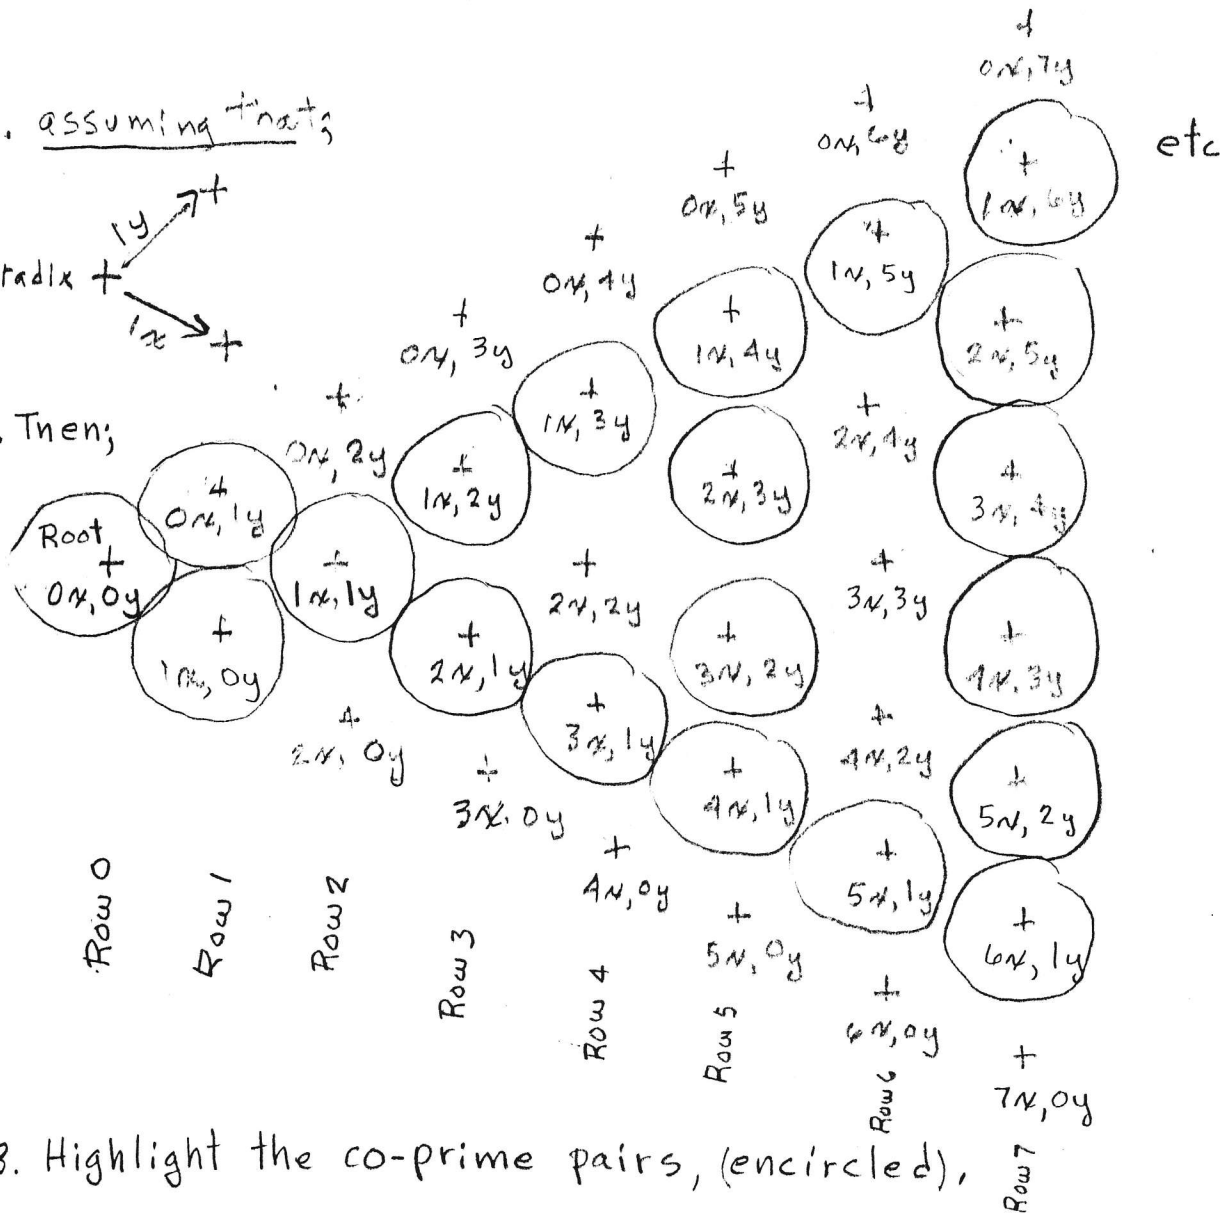 . assuming that;
1y
radix +
1x
etc
. Then;
Root
0x,0y
0x,1y
1x,0y
0x,2y
1x,1y
2x,0y
0x,3y
1x,2y
2x,1y
3x,0y
0x,4y
1x,3y
2x,2y
3x,1y
4x,0y
0x,5y
1x,4y
2x,3y
3x,2y
4x,1y
5x,0y
0x,6y
1x,5y
2x,4y
3x,3y
4x,2y
5x,1y
6x,0y
0x,7y
1x,6y
2x,5y
3x,4y
4x,3y
5x,2y
6x,1y
7x,0y
Row 0
Row 1
Row 2
Row 3
Row 4
Row 5
Row 6
Row 7
3. Highlight the co-prime pairs, (encircled).